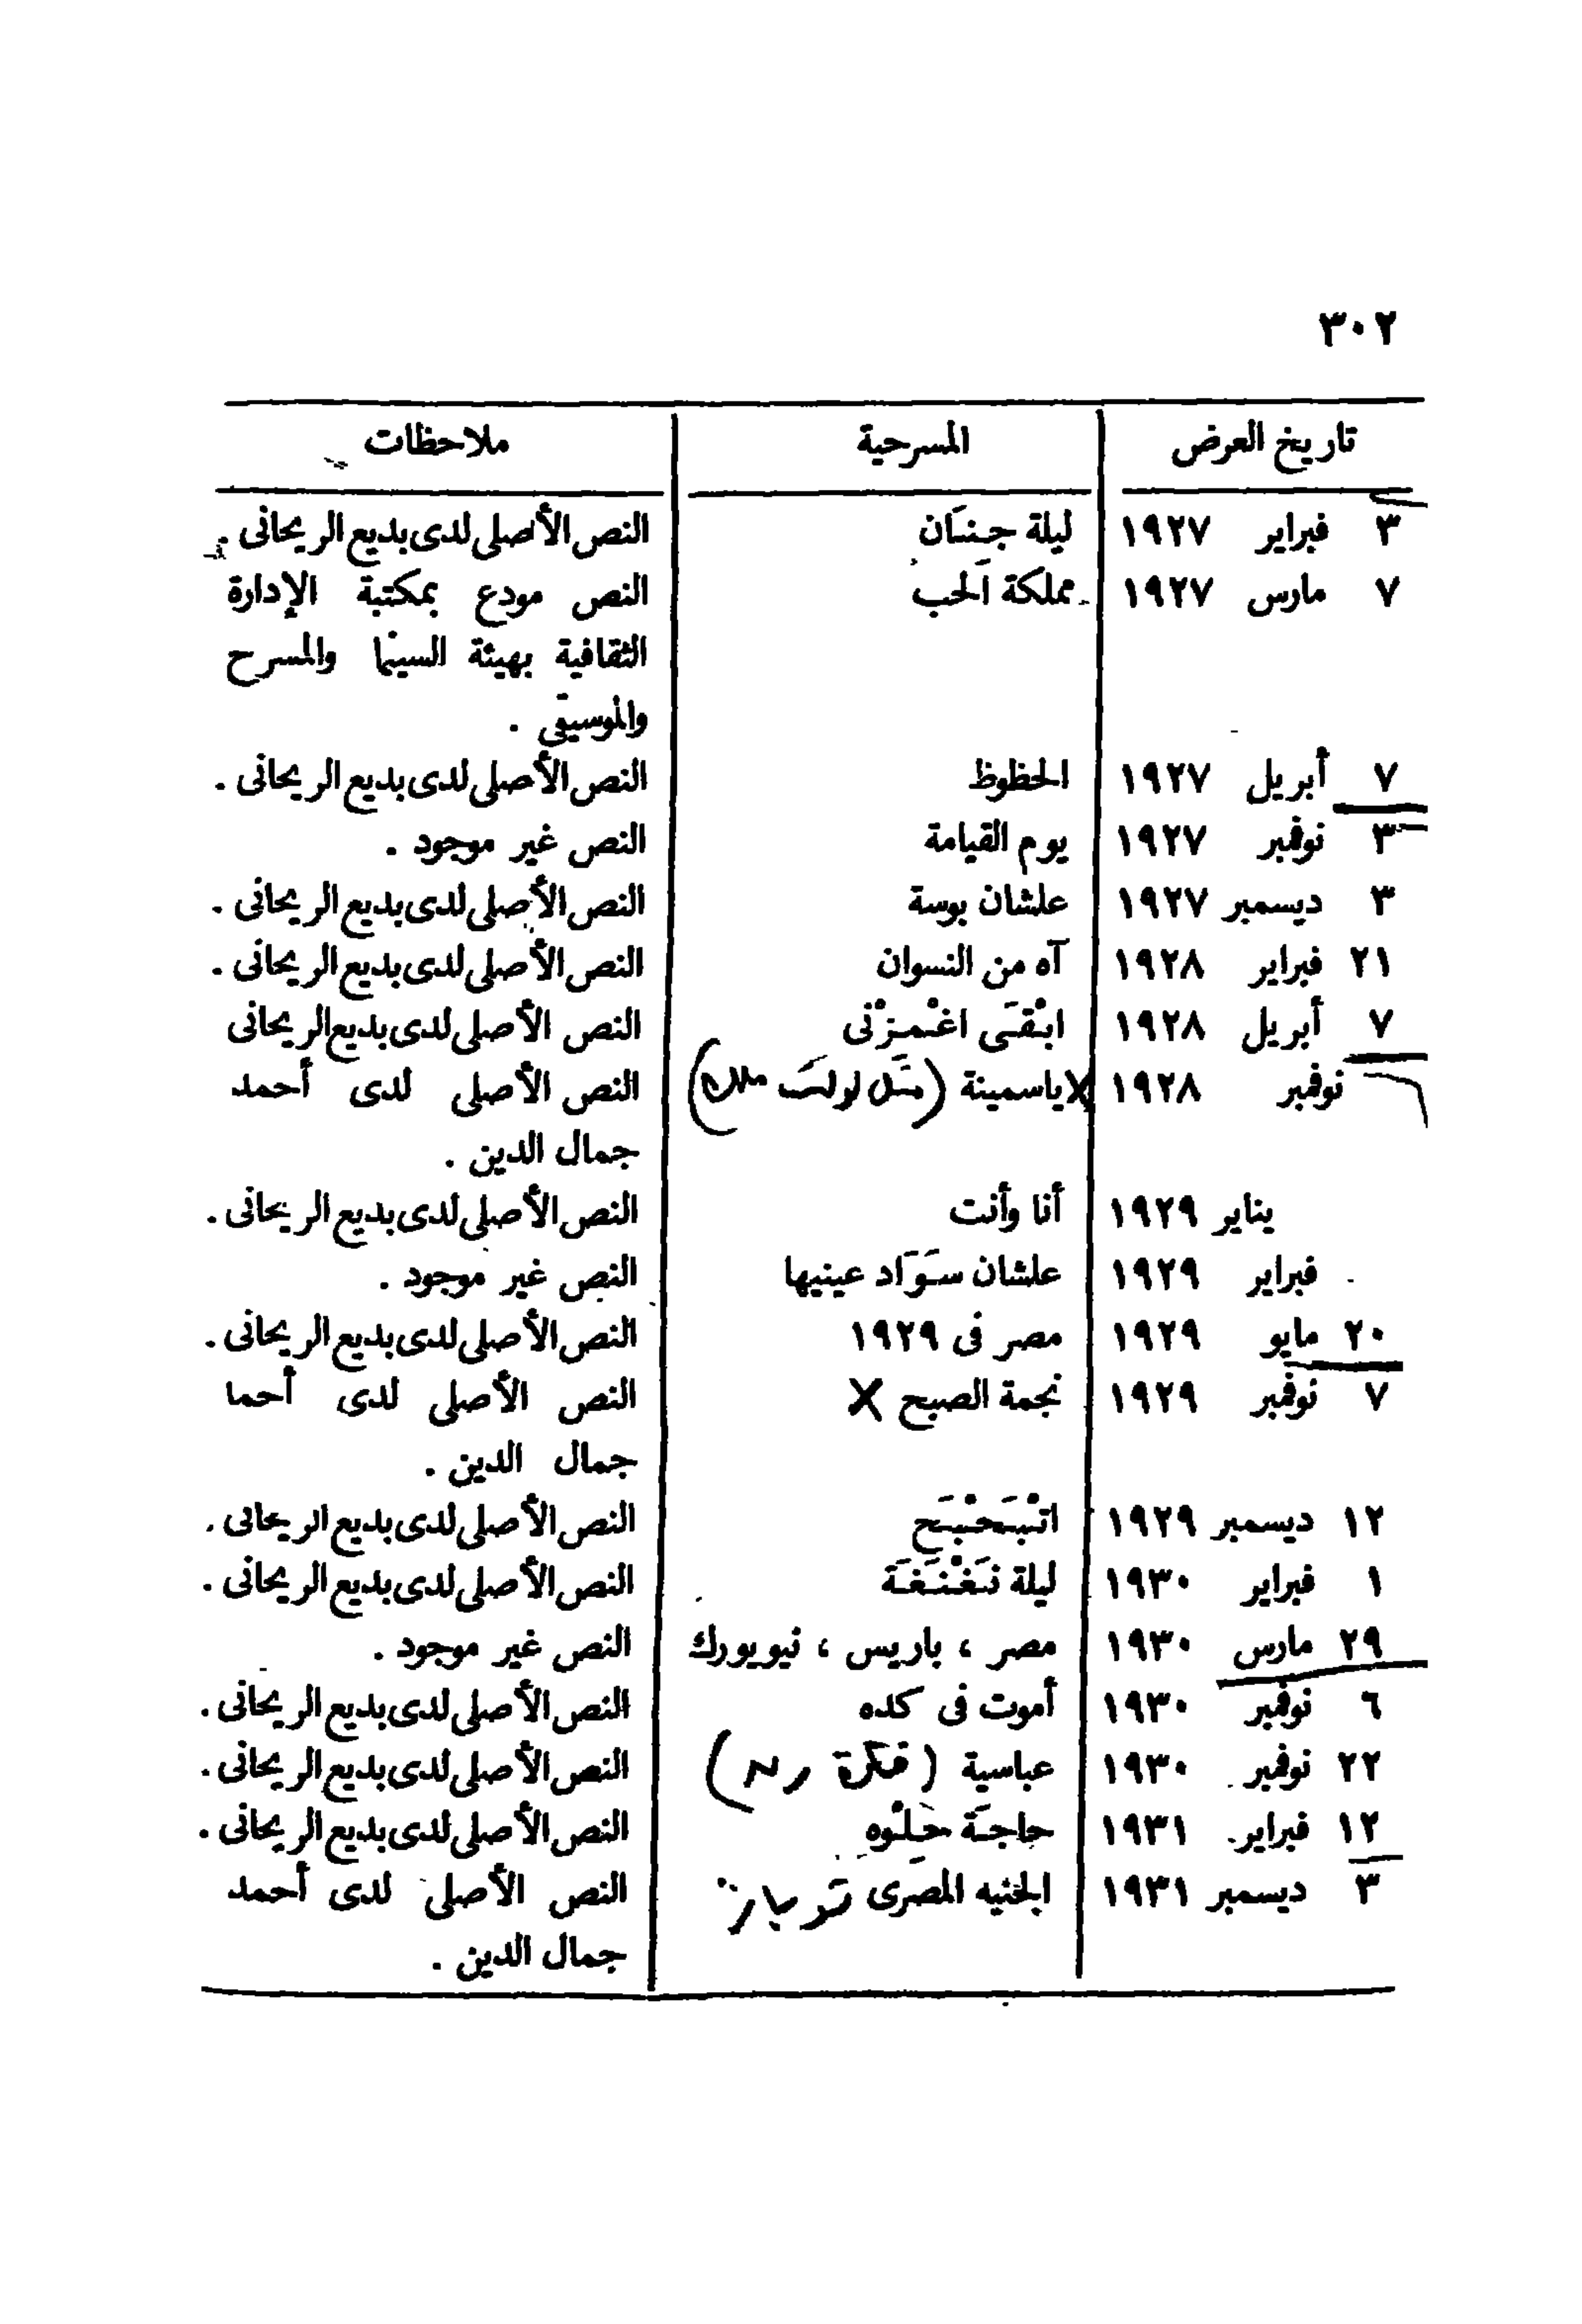 ٣٠٢
تاريخ العرض المسرحية ملاحظات
٣ فبراير ١٩٢٧ ليلة جنَان النص الأصلى لدى بديع الريحانى .
٧ مارس ١٩٢٧ مملكة الحب النص مودع بمكتبة الإدارة
الثقافية بهيئة السينما والمسرح
والموسيقى .
٧ أبريل ١٩٢٧ الحظوظ النص الأصلى لدى بديع الريحانى .
٣ نوفمبر ١٩٢٧ يوم القيامة النص غير موجود .
٣ ديسمبر ١٩٢٧ علشان بوسة النص الأصلى لدى بديع الريحانى .
٢١ فبراير ١٩٢٨ آه من النسوان النص الأصلى لدى بديع الريحانى .
٧ أبريل ١٩٢٨ ابْقَى اغْمزْنى النص الأصلى لدى بديع الريحانى
نوفمبر ١٩٢٨ X ياسمينة النص الأصلى لدى أحمد
جمال الدين .
يناير ١٩٢٩ أنا وأنت النص الأصلى لدى بديع الريحانى .
فبراير ١٩٢٩ علشان سَوَاد عينيها النص غير موجود .
٢٠ مايو ١٩٢٩ مصر فى ١٩٢٩ النص الأصلى لدى بديع الريحانى .
٧ نوفمبر ١٩٢٩ نجمة الصبح X النص الأصلى لدى أحما
جمال الدين .
١٢ ديسمبر ١٩٢٩ اتْبَحْبَح النص الأصلى لدى بديع الريحانى .
١ فبراير ١٩٣٠ ليلة نَغْنَغَة النص الأصلى لدى بديع الريحانى .
٢٩ مارس ١٩٣٠ مصر ، باريس ، نيويورك النص غير موجود .
٦ نوفمبر ١٩٣٠ أموت فى كده النص الأصلى لدى بديع الريحانى .
٢٢ نوفمبر ١٩٣٠ عباسية (فكرة النص الأصلى لدى بديع الريحانى .
١٢ فبراير ١٩٣١ حاجَة حَلْوه النص الأصلى لدى بديع الريحانى .
٣ ديسمبر ١٩٣١ الجنيه المصَرى توباز النص الأصلى لدى أحمد
جمال الدين .